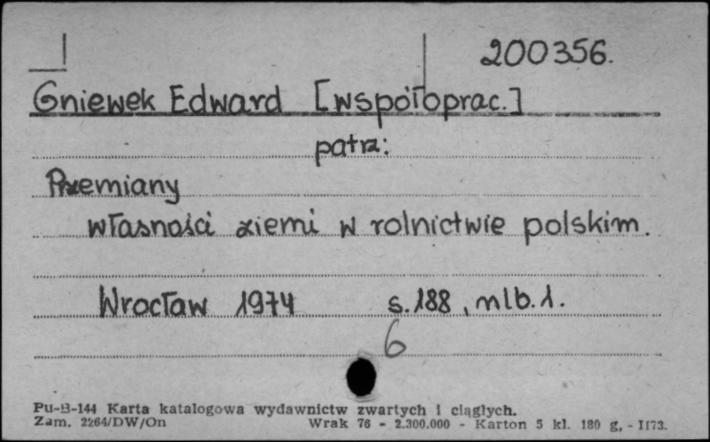 200356.
Gniewek Edward [współoprac.]
patrz:
Przemiany
własności ziemi w rolnictwie polskim.
Wrocław 1974 s.188, nlb.1.
6
Pu-B-144 Karta katalogowa wydawnictw zwartych i ciągłych.
Zam. 2264/DW/On Wrak 76 - 2.300.000 - Karton 5 kl. 180 g, - 1173.